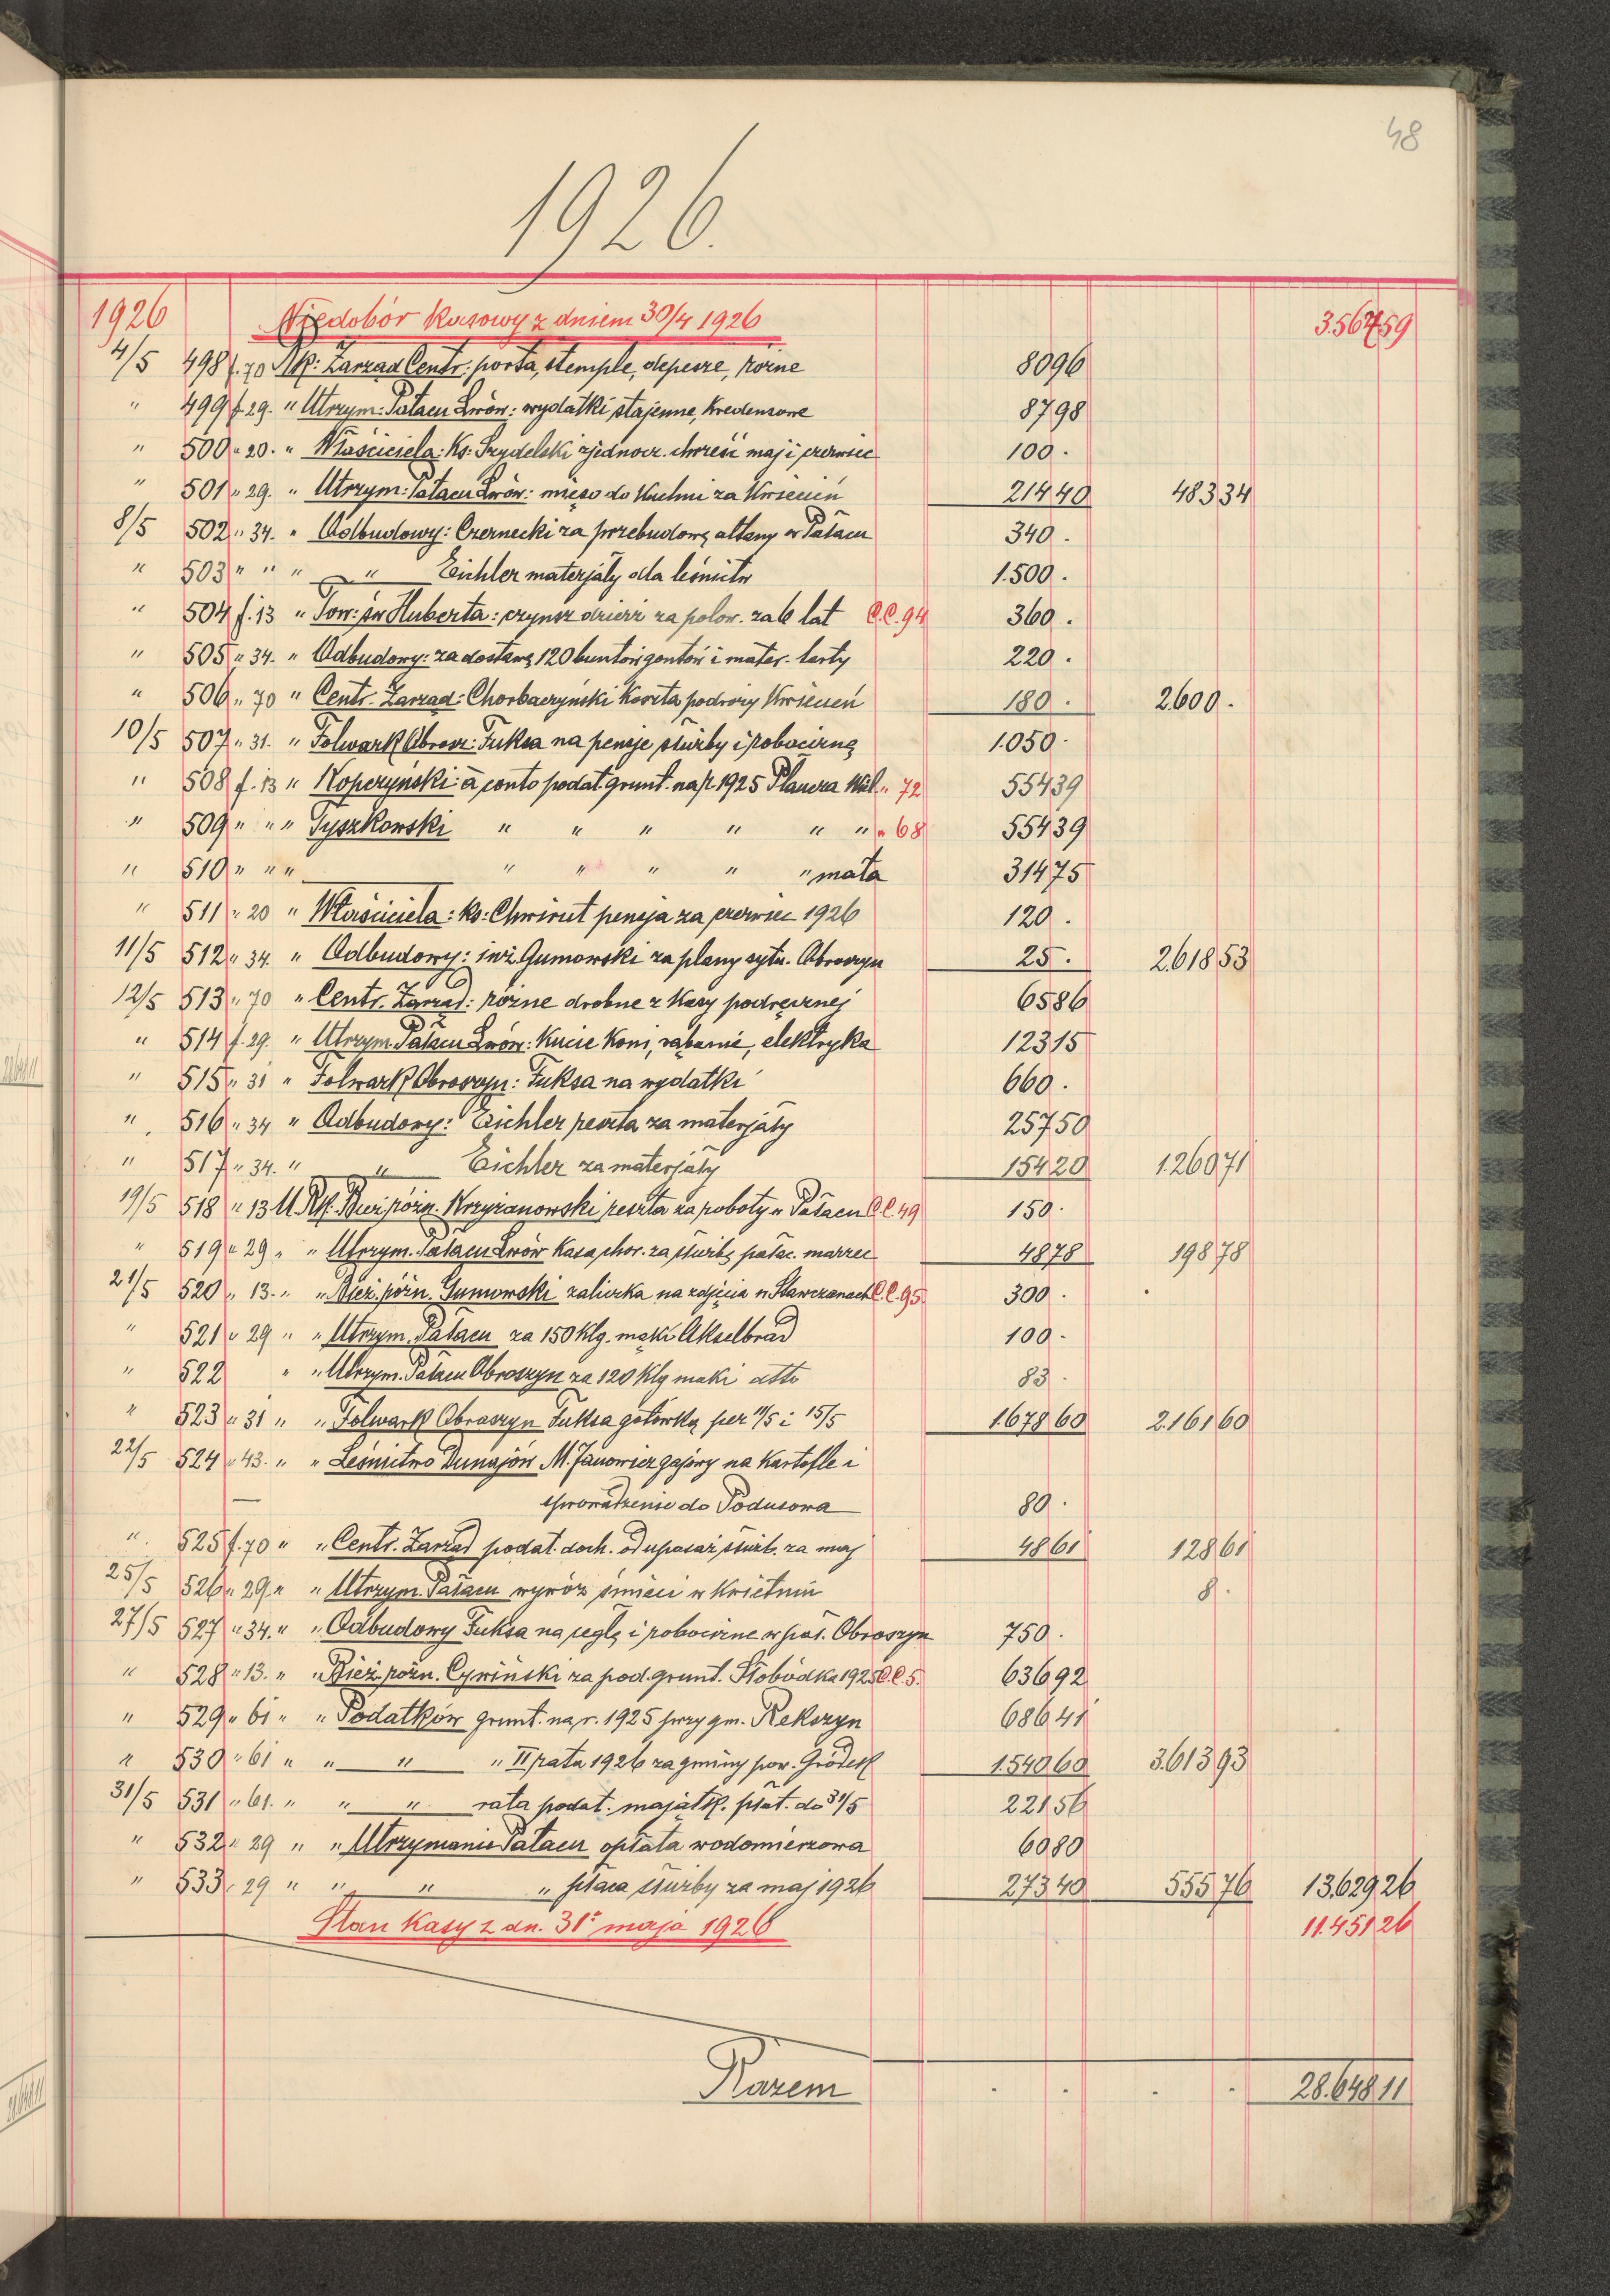 48
1926.
1926 Niedobór kasowy z dniem 30/4 1926 3.567 59
4/5 498 f. 70 Rk: Zarząd Centr: porta, stemple, depesze, różne 80 96
" 499 f. 29. " Utrzym: Pałacu Lwów: wydatki stajenne, kredensowe 87 98
" 500 " 20. " Właściciela: Ks: Szydelski zjednocz. chrześć maj i czerwiec 100 .
" 501 " 29. " Utrzym: Pałacu Lwów: mięso do kuchni za kwiecień 214 40 483 34
8/5 502 " 34. " Odbudowy: Czernecki za przebudowę altany w Pałacu 340 .
" 503 " " " " Eichler materjały dla leśnictw 1.500 .
" 504 f. 13 " Tow: św Huberta: czynsz dzierż za polow. za 6 lat C.C. 94 360 .
" 505 " 34. " Odbudowy: za dostawę 120 buntów gontów i mater. tarty 220 .
" 506 " 70 " Centr. Zarząd: Chorbaczyński koszta podróży kwiecień 180 . 2.600 .
10/5 507 " 31. " Folwark Obrosz: Fuksa na pensje służby i robociznę 1.050 .
" 508 f. 13 " Kopczyński: à conto podat. grunt. na r. 1925 Płaucza Wiel. " 72 554 39
" 509 " " " Tyszkowski " " " " " " " 68 554 39
" 510 " " " " " " " " mała 314 75
" 511 " 20 " Właściciela: ks: Chwirut pensja za czerwiec 1926 120 .
11/5 512 " 34. " Odbudowy: inż. Gumowski za plany sytu. Obroszyn 25 . 2.618 53
12/5 513 " 70 " Centr. Zarząd: różne drobne z kasy podręcznej 65 86
" 514 f. 29. " Utrzym Pałacu Lwów: kucie koni, rąbanie, elektryka 123 15
" 515 " 31 " Folwark Obroszyn: Fuksa na wydatki 660 .
" 516 " 34 " Odbudowy: Eichler reszta za materjały 257 50
" 517 " 34. " " Eichler za materjały 154 20 1.260 71
19/5 518 " 13 U Rk. Bież. różn. Krzyżanowski reszta za roboty w Pałacu C.C. 49 150 .
" 519 " 29 " " Utrzym. Pałacu Lwów Kasa chor. za służbę pałac. marzec 48 78 198 78
21/5 520 " 13. " " Bież. różn. Gumowski zaliczka na zdjęcia w Stawczanach C.C. 95. 300 .
" 521 " 29 " " Utrzym. Pałacu za 150 klg. mąki Akselbrad 100 .
" 522 " " Utrzym. Pałacu Obroszyn za 120 klg mąki dtto 83 .
" 523 " 31 " " Folwark Obroszyn Fuksa gotówką per 11/5 i 15/5 1.678 60 2.161 60
22/5 524 " 43. " " Leśnictwo Dunajów M. Janowicz gajowy na kartofle i
sprowadzenie do Podusowa 80 .
" 525 f. 70 " " Centr. Zarząd podat. doch. od uposaż służb. za maj 48 61 128 61
25/5 526 " 29 " " Utrzym. Pałacu wywóz śmieci w kwietniu 8 .
27/5 527 " 34. " " Odbudowy Fuksa na cegłę i robociznę w pał. Obroszyn 750 .
" 528 " 13. " " Bież. różn. Cywiński za pod. grunt. Słobódka 1925 C.C. 5. 636 92
" 529 " 61 " " Podatków grunt. na r. 1925 przy gm. Rekszyn 686 41
" 530 " 61 " " " " II rata 1926 za gminy pow. Gródek 1.540 60 3.613 93
31/5 531 " 61. " " " rata podat. majątk. płat. do 31/5 221 56
" 532 " 29 " " Utrzymanie Pałacu opłata wodomierzowa 60 80
" 533 " 29 " " " " płaca służby za maj 1926 273 40 555 76 13.629 26
Stan kasy z dn. 31° maja 1926 11.451 26
Razem . . . . 28.648 11